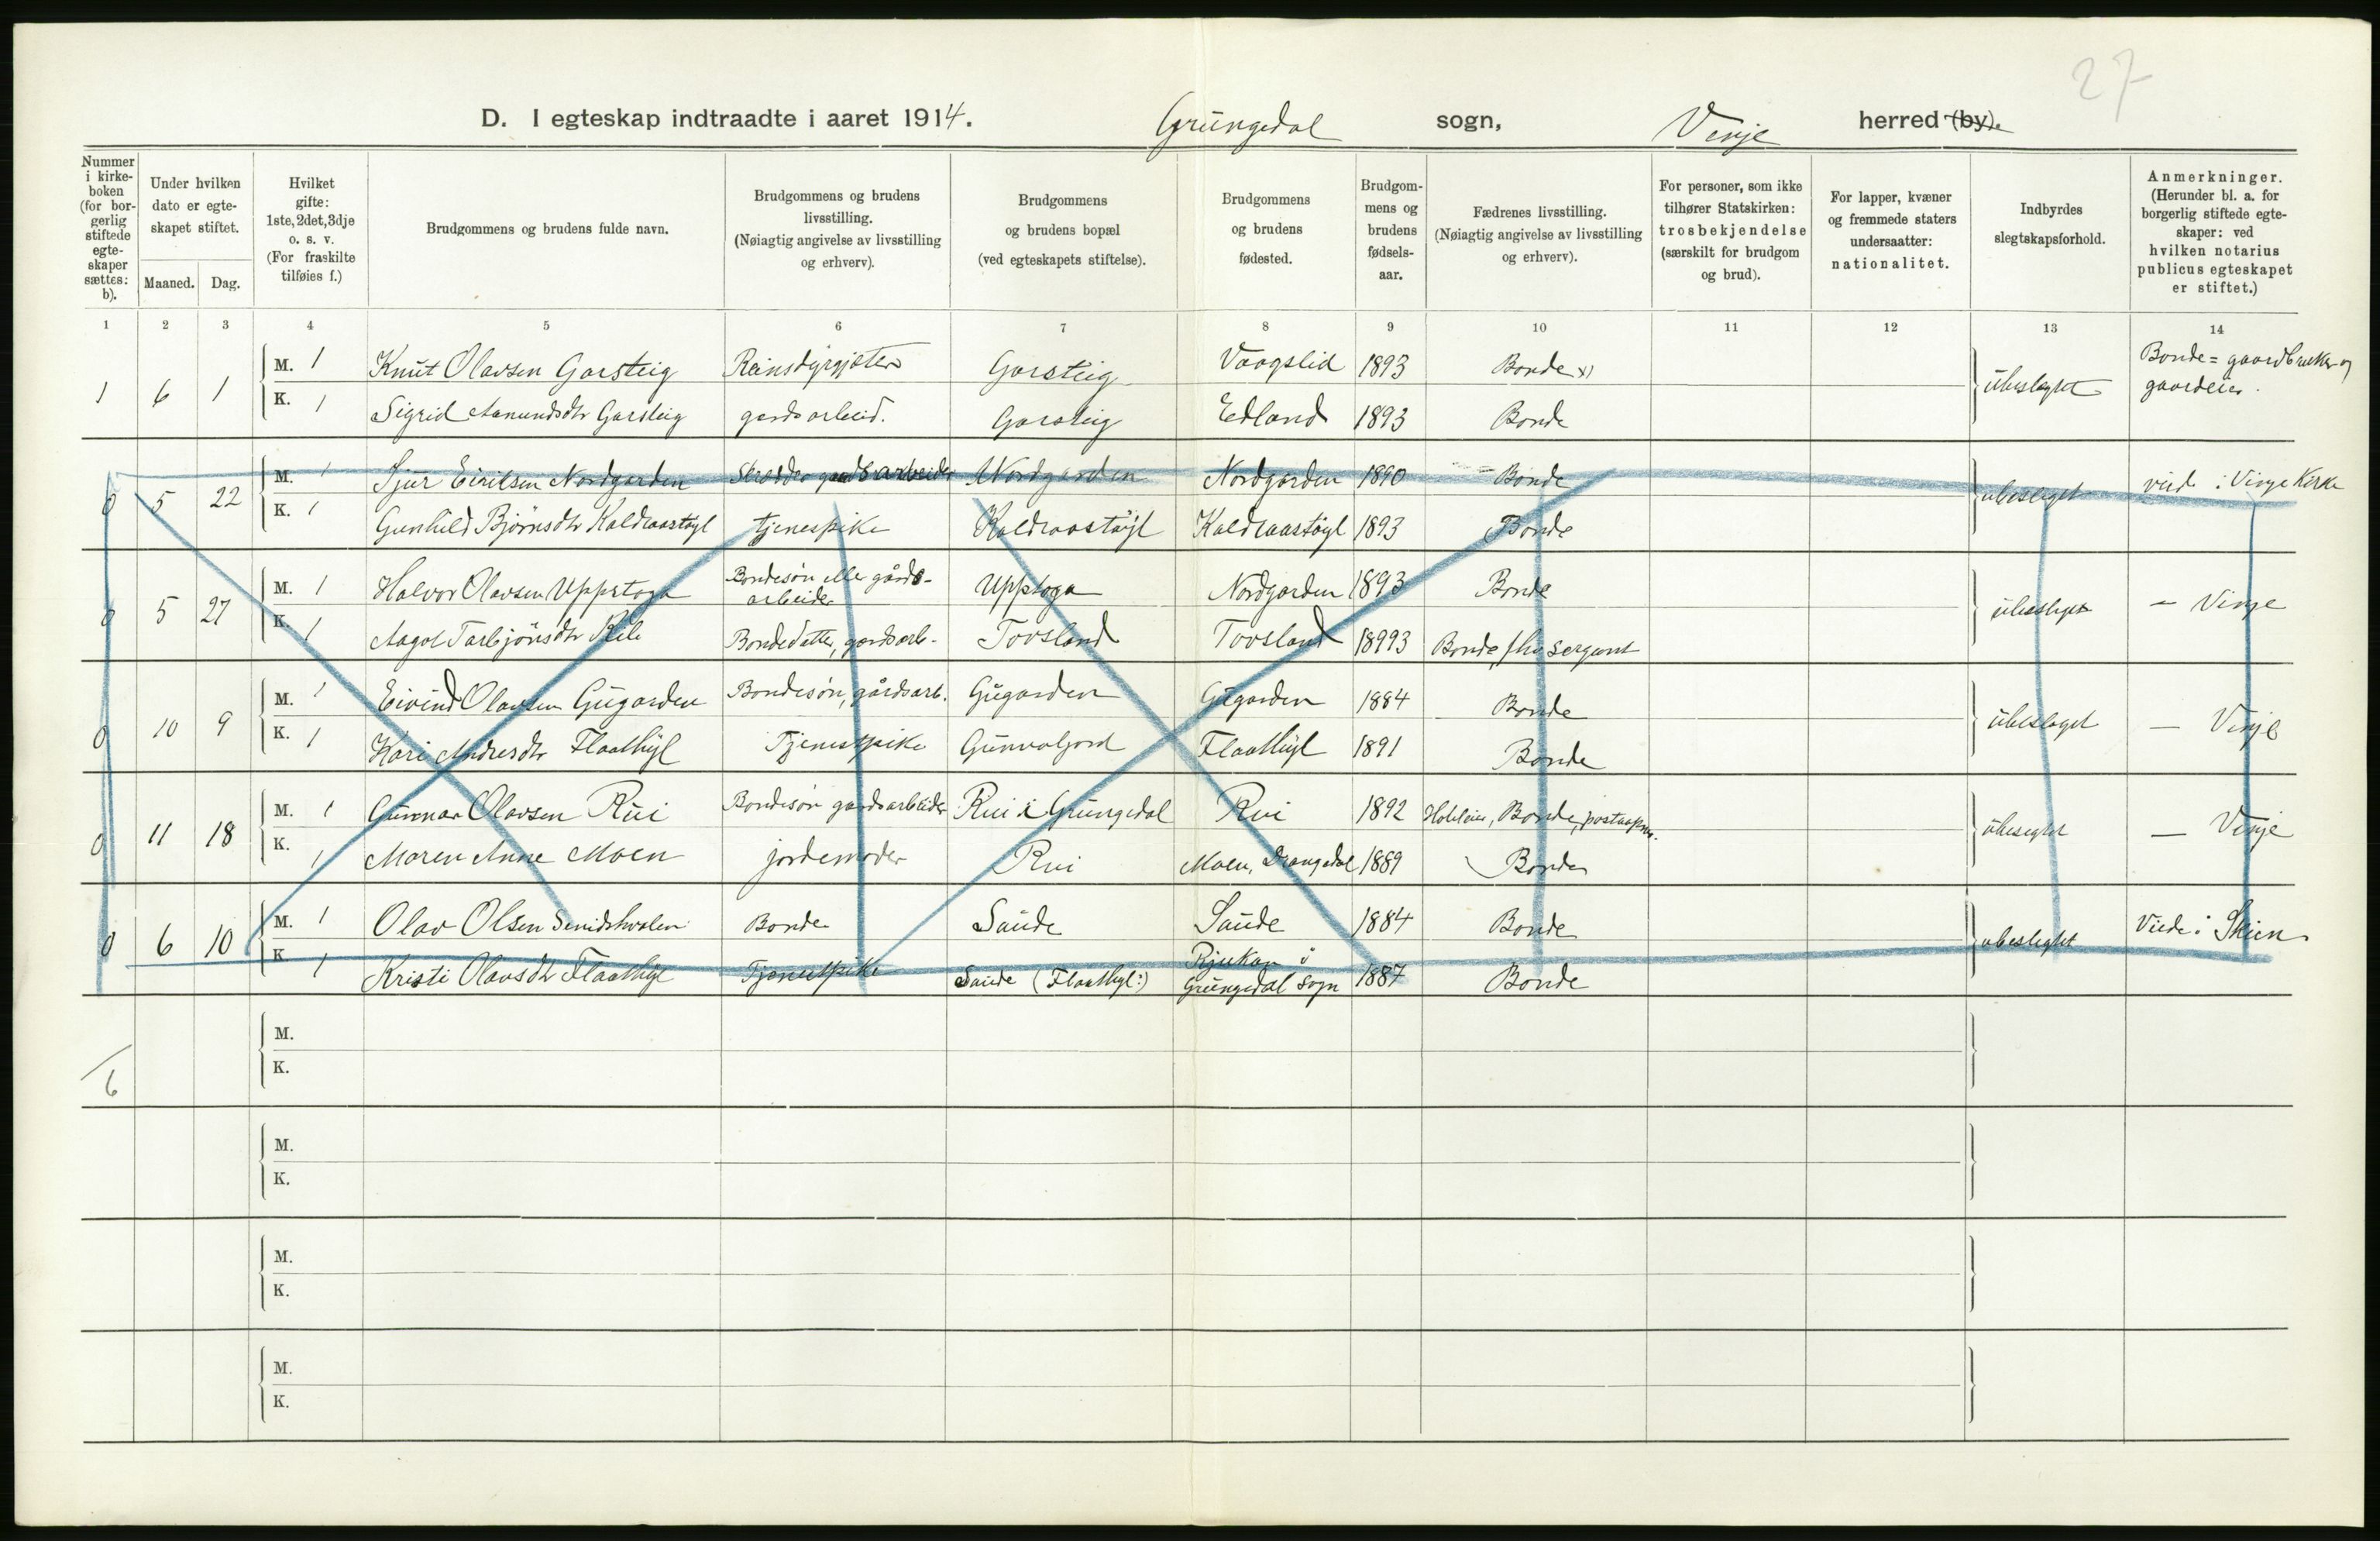 27
D. I egteskap indtraadte i aaret 1914. Grungedal sogn, Vinje herred (by).
Nummer i kirke-boken (for bor-gerlig stiftede egte-skaper sættes: b).
Under hvilken dato er egte-skapet stiftet.
Maaned. Dag.
Hvilket gifte: 1ste, 2det, 3dje o. s. v. (For fraskilte tilføies f.)
Brudgommens og brudens fulde navn.
Brudgommens og brudens livsstilling. (Nøiagtig angivelse av livsstilling og erhverv).
Brudgommens og brudens bopæl (ved egteskapets stiftelse).
Brudgommens og brudens fødested.
Brudgom-mens og brudens fødsels-aar.
Fædrenes livsstilling. (Nøiagtig angivelse av livsstilling og erhverv).
For personer, som ikke tilhører Statskirken: trosbekjendelse (særskilt for brudgom og brud).
For lapper, kvæner og fremmede staters undersaatter: nationalitet.
Indbyrdes slegtskapsforhold.
Anmerkninger. (Herunder bl. a. for borgerlig stiftede egte-skaper: ved hvilken notarius publicus egteskapet er stiftet.)
1 2 3 4 5 6 7 8 9 10 11 12 13 14
1 6 1 M. 1 Knut Olavsen Garsteig Reinsdyrgjæter Garsteig Vaagslid 1893 Bonde x) ubeslegtet Bonde = gaardbruker og gaardeier.
K. 1 Sigrid Aanundsdtr Garsteig gardsarbeid. Garsteig Edland 1893 Bonde
0 5 22 M. 1 Sjur Eiriksen Nordgarden Skrædder gaardsarbeider Nordgarden Nordgarden 1890 Bonde ubeslegtet viede i Vinje Kirke
K. 1 Gunhild Bjørnsdtr Kaldraastøyl tjenespike Kaldraastøyl Kaldraastøyl 1893 Bonde
0 5 27 M. 1 Halvor Olavsen Uppstoga Bondesøn eller gårds-arbeider Uppstoga Nordgarden 1893 Bonde ubeslegtet — Vinje
K. 1 Aagot Tarbjønsdtr Bondedatter, gardsarb. Tovsland Tovsland 18993 Bonde, fhv sergeant
0 10 9 M. 1 Eivind Olavsen Gugarden Bondesøn, gårdsarb. Gugarden Gugarden 1884 Bonde ubeslegtet — Vinje
K. 1 Kari Andresdtr Flaathyl Tjenestpike Gunvaljord Flaathyl 1891 Bonde
0 11 18 M. 1 Gunnar Olavsen Rui Bondesøn gardsarbeider Rui i Grungedal Rui 1892 Hoteleier, Bonde, postaapner. ubeslegtet — Vinje
K. 1 Maren Anne Moen jordemoder Rui Moen, Drangedal 1889 Bonde
0 6 10 M. 1 Olav Olsen Bonde Saude Saude 1884 Bonde ubeslegtet Viede i Skien
K. 1 Kristi Olavsdtr Flaathyl Tjenestpike Saude (Flaathyl:) Rjukan i Grungedal sogn 1887 Bonde
M.
K.
6
M.
K.
M.
K.
M.
K.